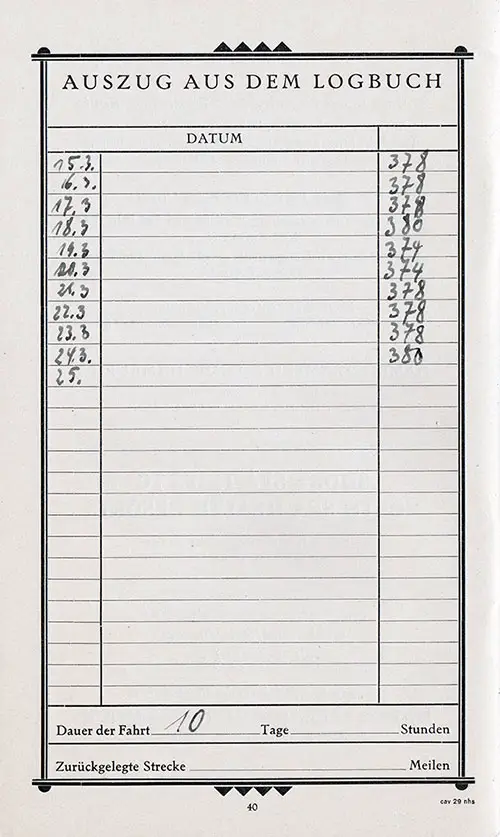 AUSZUG AUS DEM LOGBUCH
DATUM
15.3. 378
16.3. 378
17.3 378
18.3 380
19.3 374
20.3 374
21.3 378
22.3 378
23.3 378
24.3. 380
25.
Dauer der Fahrt 10 Tage Stunden
Zurückgelegte Strecke Meilen
40
cav 29 nhs